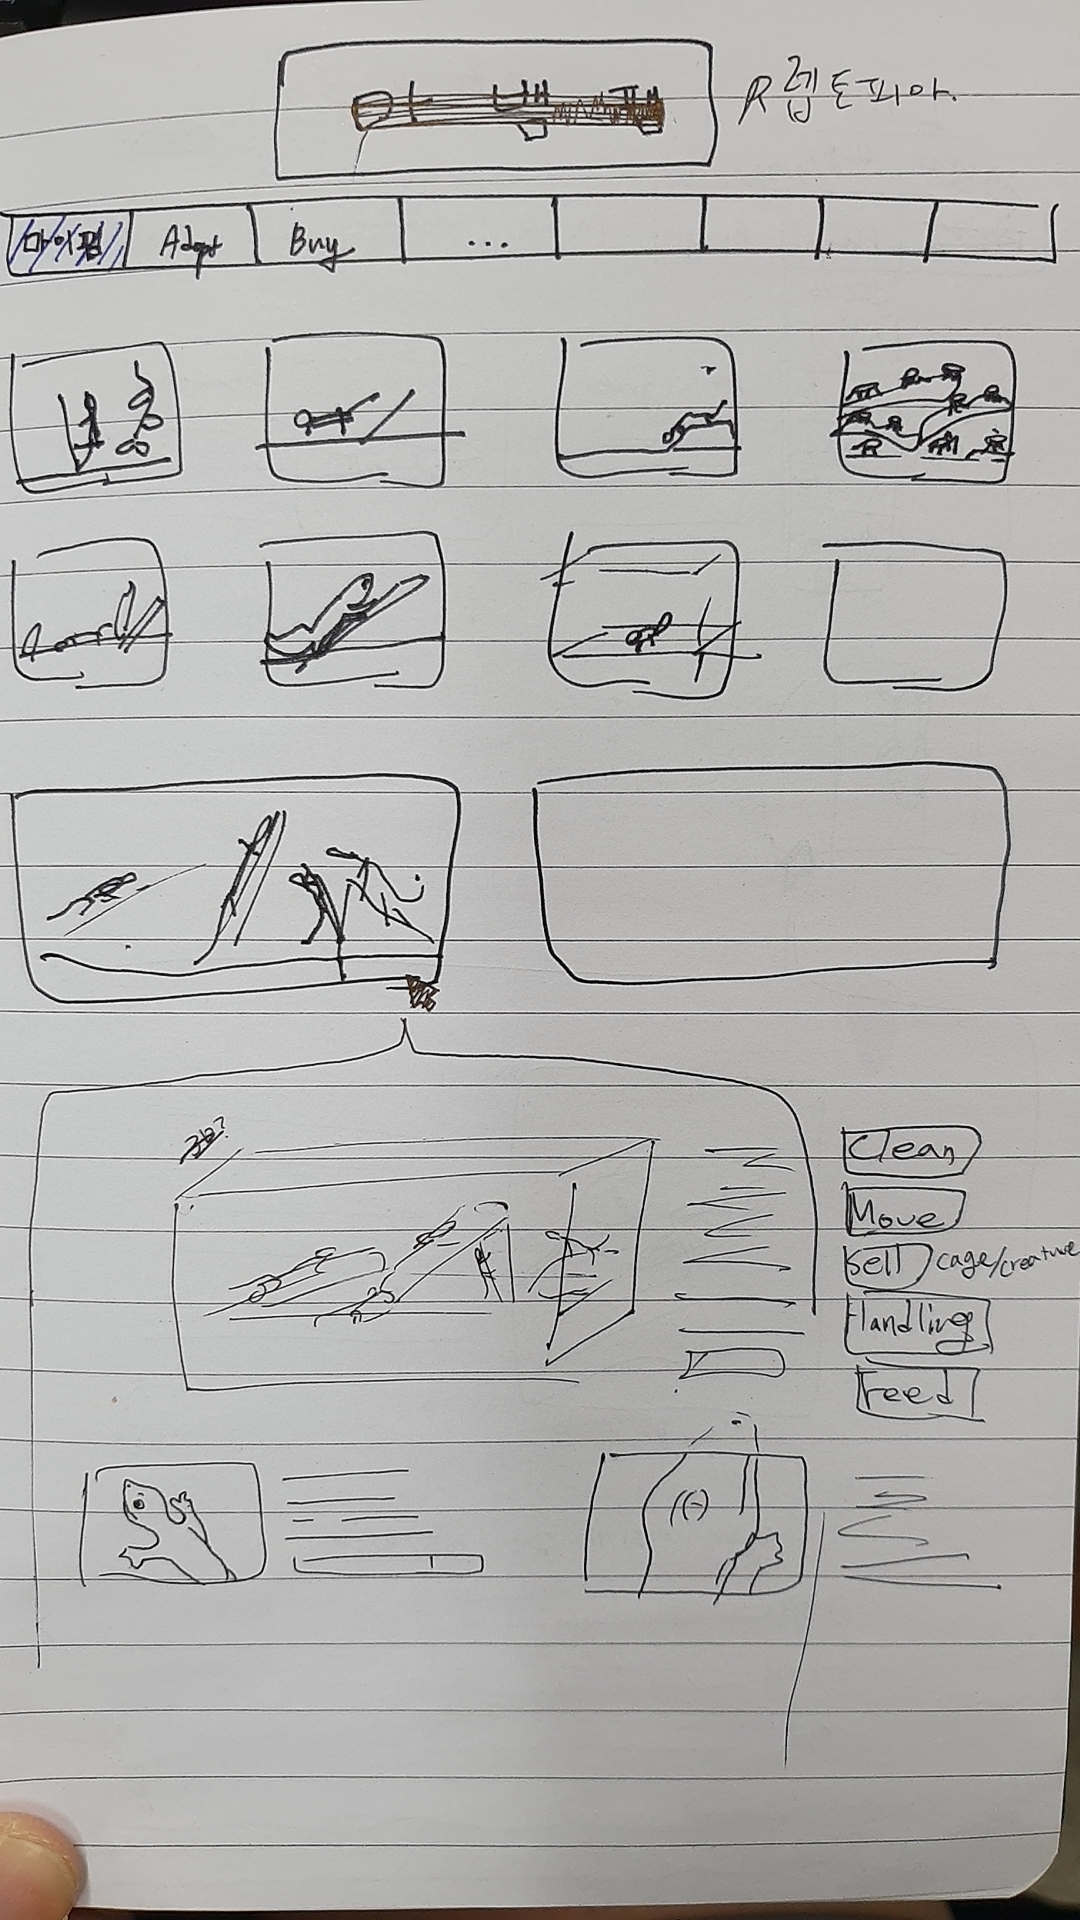 렙토피아.
마이펌
Adopt
Buy
...
Clean
Move
Sell cage/creature
Handling
Feed